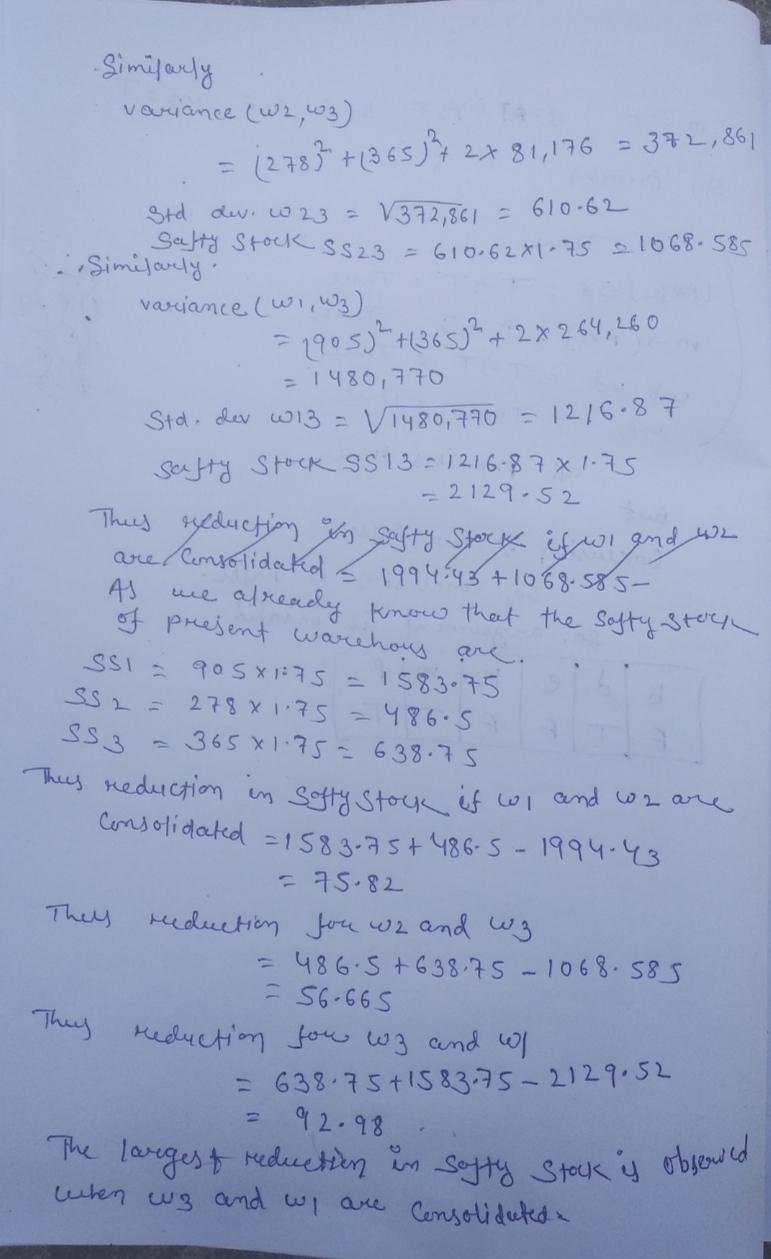 Similarly
variance (w2, w3)
= (278)² + (365)² + 2 x 81,176 = 372,861
Std dev. w23 = √372,861 = 610.62
Safty Stock SS23 = 610.62 x 1.75 = 1068.585
Similarly.
variance (w1, w3)
= (905)² + (365)² + 2 x 264,260
= 1480,770
Std. dev w13 = √1480,770 = 1216.87
Safty Stock SS13 = 1216.87 x 1.75
= 2129.52
Thus reduction in Safty Stock if w1 and w2
are Consolidated = 1994.43 + 1068.585 -
As we already know that the Safty stock
of present warehous are.
SS1 = 905 x 1.75 = 1583.75
SS2 = 278 x 1.75 = 486.5
SS3 = 365 x 1.75 = 638.75
Thus reduction in Safty Stock if w1 and w2 are
Consolidated = 1583.75 + 486.5 - 1994.43
= 75.82
Thus reduction for w2 and w3
= 486.5 + 638.75 - 1068.585
= 56.665
Thus reduction for w3 and w1
= 638.75 + 1583.75 - 2129.52
= 92.98
The largest reduction in Safty Stock is observed
when w3 and w1 are Consolidated.